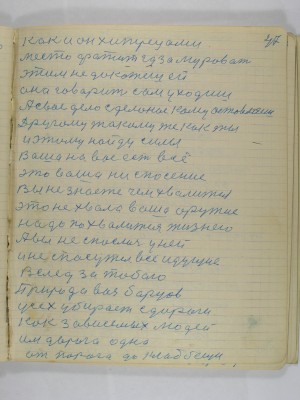 как и он хитрецами
место фратит гдзамуроват
этим не докажиш ей
она говорит сам уходиш
А свае дело сделоное кому оставляеш
Другому такому же как ты
и этому найду силы
Ваша на вас ест всё
это ваша ни спосение
Вы не знаете чем хвалитися
это не хвала ваша оружие
надо похвалится жизнею
А вы не спослис у ней
и не спосутся все идущие
Вслед за тобою
Природа вас
усех убирает сдароги
как зависемых людей
им дарога одна
от порога до